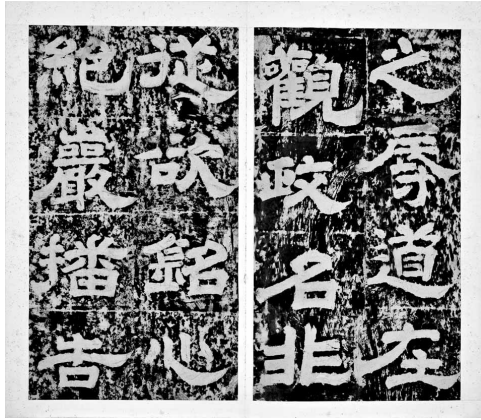 之辱道在
觀政名非
從欲銘心
絕巖播告